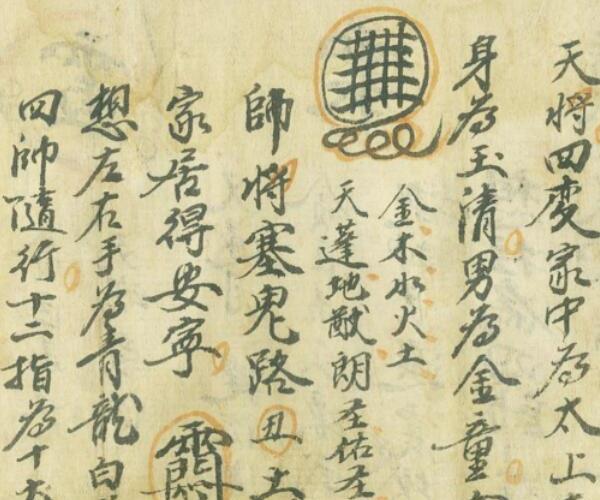 天將四変家中為太上
身為玉清男為金童
金木水火土
天蓬地猷朗圣佑圣
師將塞鬼路丑土
家居得安寧
想左右手為青龍白
四帥隨行十二指為十